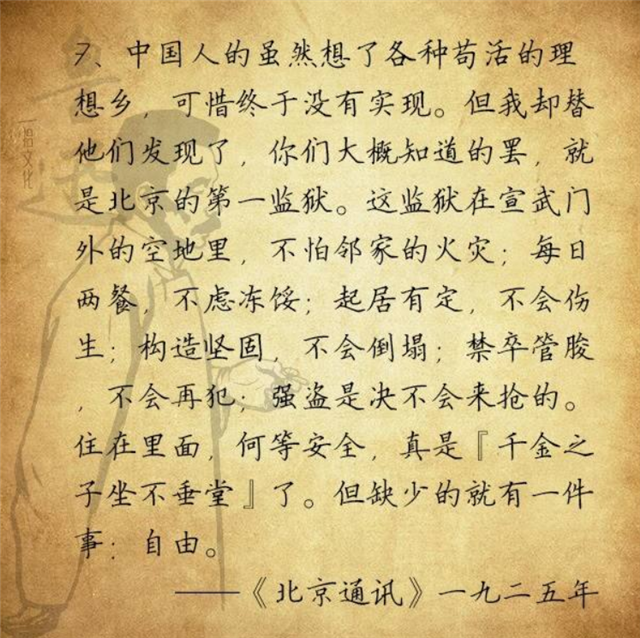 7、中国人的虽然想了各种苟活的理
想乡，可惜终于没有实现。但我却替
他们发现了，你们大概知道的罢，就
是北京的第一监狱。这监狱在宣武门
外的空地里，不怕邻家的火灾；每日
两餐，不虑冻馁；起居有定，不会伤
生；构造坚固，不会倒塌；禁卒管胺
，不会再犯；强盗是决不会来抢的。
住在里面，何等安全，真是『千金之
子坐不垂堂』了。但缺少的就有一件
事：自由。
——《北京通讯》一九二五年
一拾文化